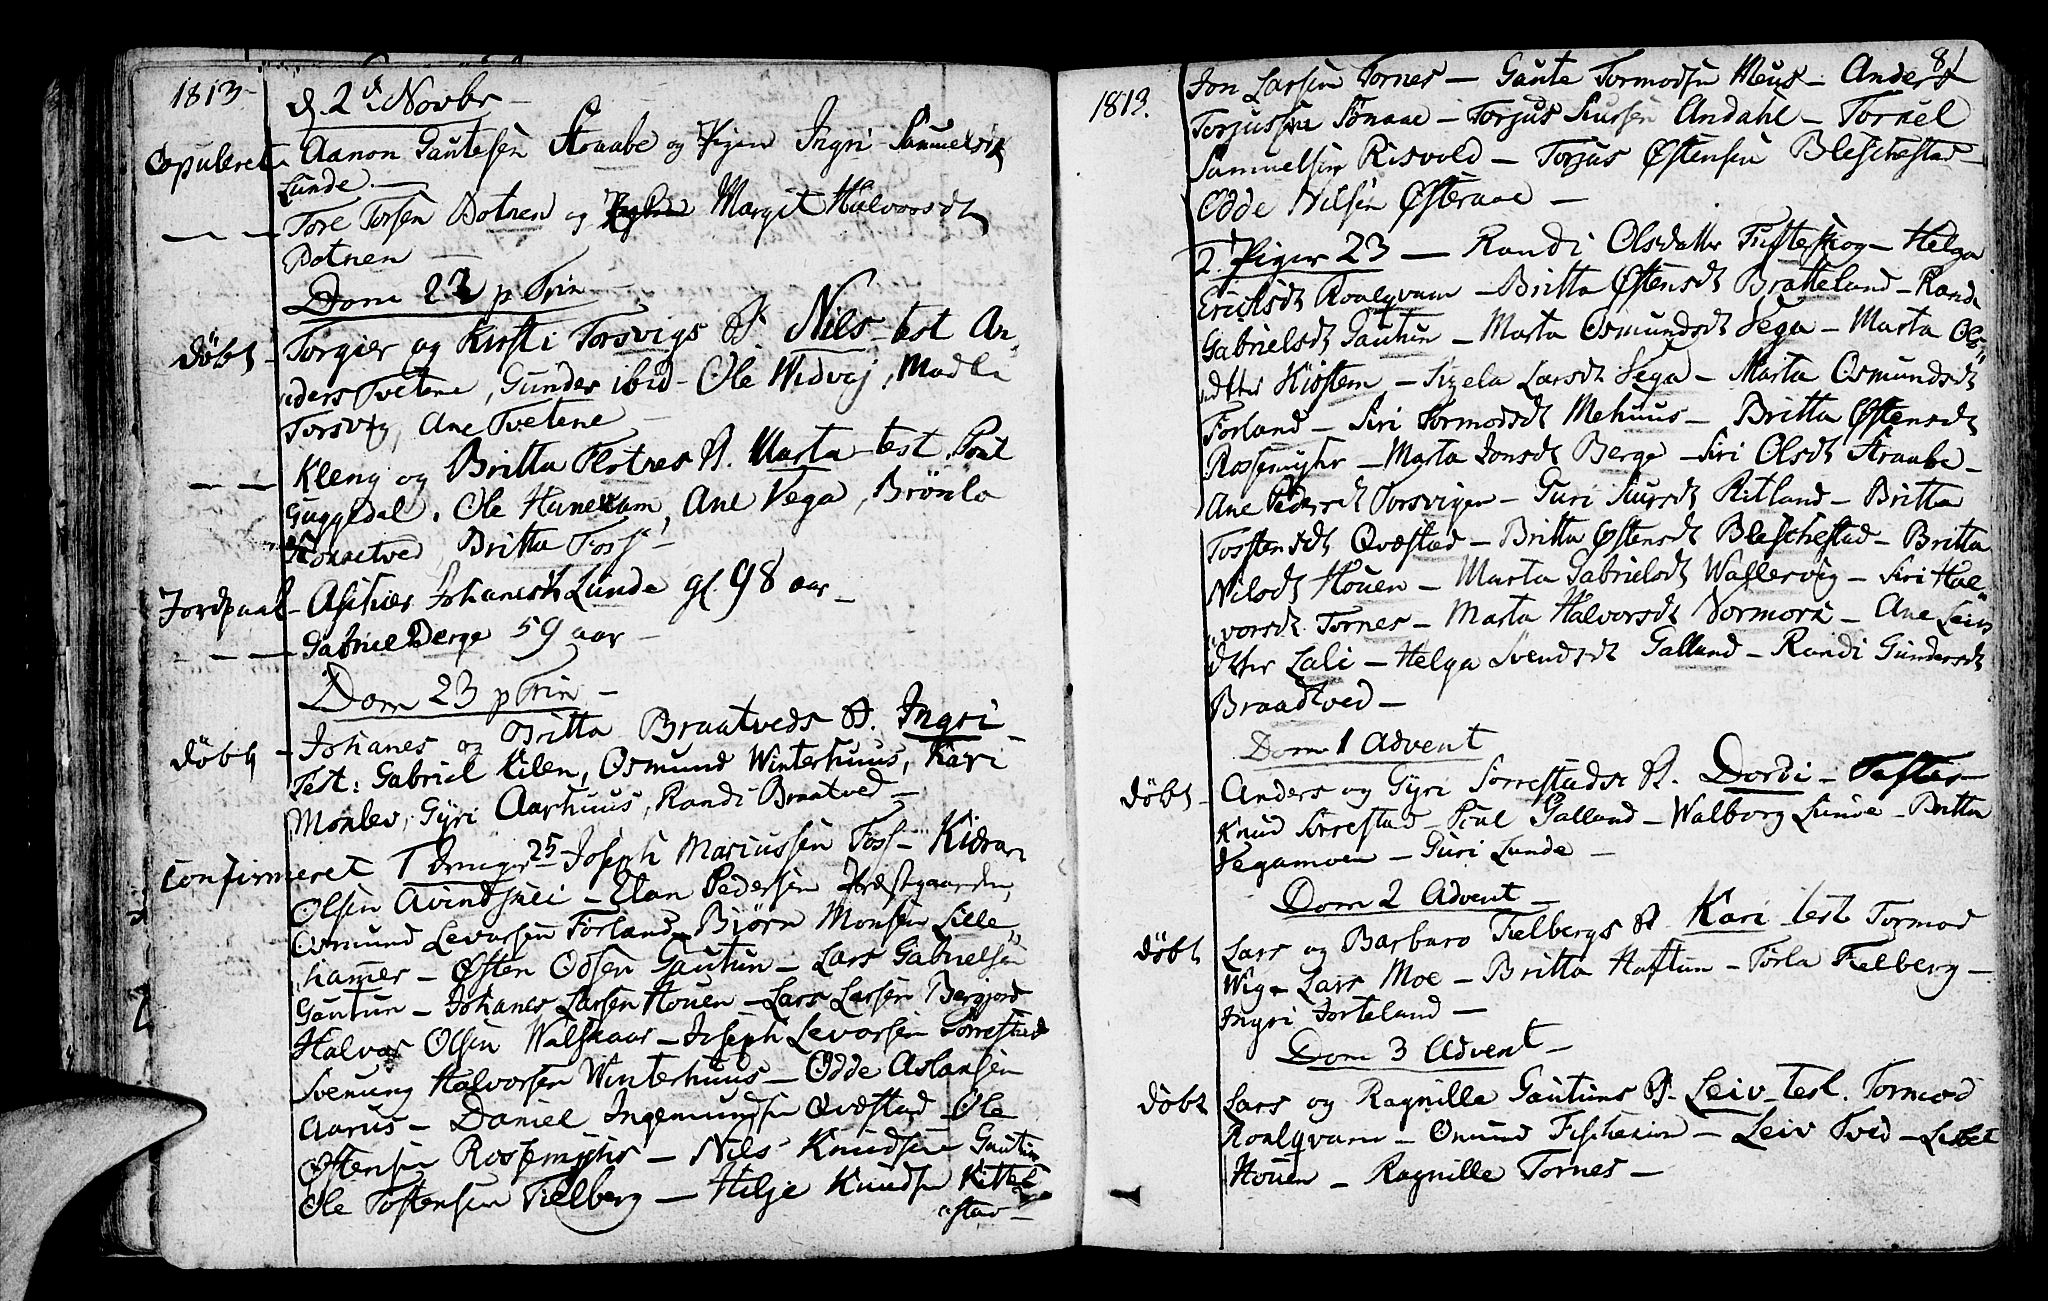 1813-
d. 2d Novbr -
Copuleret - Aanon Gautesen Straabe og Pigen Ingri Samuelsdt
Lunde. -
— — — Tore Torsen Botnen og Margit Halvorsdt
Botnen -
Dom 22 p Trin -
døbt - Torgier og Kirsti Torsvigs B. Nils - test An-
ders Tvetene, Gunder ibid - Ole Widvaj, Madli
Torsvig, Ane Tvetene -
— — Kleng og Britta Flotnes B. Marta - test Poul
Guggedal. Ole Ane Vega, Brønla
Britta Foss -
Jordpaak - Johanesdt Lunde gl. 98 aar -
- — — Gabriel Berge 59 aar -
Dom 23 p Trin -
døbt - Johanes og Britta Braatveds B. Ingri -
Test: Gabriel Kilen, Osmund Winterhuus, Kari
Monlev, Gyri Aarhuus, Randi Braatved -
Confirmeret 1 Drenger 25 - Joseph Mariussen Foss -
Olsen - Elan Pedersen Præstgaarden,
Osmund Levorsen Førland - Bjørn Monsen Lille,,
hamer - Østen Odsen Gautun - Lars Gabrielsen
Gautun - Johanes Larsen Houen - Lars Larsen Bergjord
Halvor Olsen Walskaar - Joseph Levorsen Sørrestad
Svenung Halvorsen Winterhuus - Odde Aslansen
Aarus - Daniel Ingemundsen Qvæstad - Ole
Østensen Rossemyhr - Nils Knudsen Gautun
Ole Tostensen Fielberg - Hilje Knudsen Kittels
aftav -
81
1813.
Jon Larsen Tornes - Gaute Tormodsen Meus - Anders
Torjussen Tønaae - Torjus Siursen Andahl - Torkel
Samuelsen Risvold - Torjus Østensen Bleschestad -
Odde Nilsen Østeraae -
2. Piger 23 - Randi Olsdatter Tufteskog - Helga
Ericksdt Roalqvam - Britta Østensdt Bratteland - Randi
Gabrielsdt Gautun - Marta Osmundsdt Vega - Marta Ols,,
datter - Sizela Larsdt Vega - Marta Osmundsdt
Førland - Siri Tormodsdt Mehuus - Britta Østensdt
Rossemyhr - Marta Jonsdt Berge - Siri Olsdt Straabe -
Ane Pedersdt Torsvigen - Guri Siursdt Ritland - Britta
Tostensdt Qvæstad - Britta Østensdt Bleschestad - Britta
Nilsdt Houen - Marta Gabrielsdt Wastervig - Siri Hal,,
vorsdt Tornes - Marta Halvorsdt Normork - Ane Leivs
datter Lali - Helga Svendsdt Galland - Randi Gundersdt
Braadtved -
Dom 1 Advent
døbt - Anders og Gyri Sørrestads B. Dordi -
Knud Sørrestad - Poul Galland - Walborg Lunde - Britta
Vegamoen - Guri Lunde -
Dom 2 Advent -
døbt Lars og Barbaro Fielbergs B. Kari test Tormod
Wig - Lars Moe - Britta Haftun - Torla Fielberg -
Ingri Jorteland -
Dom 3 Advent -
døbt Lars og Ragnille Gautuns B. Leiv - test. Tormod
Roalqvam - Omund - Leiv Tved - Lisbet
Houen - Ragnille Tornes -